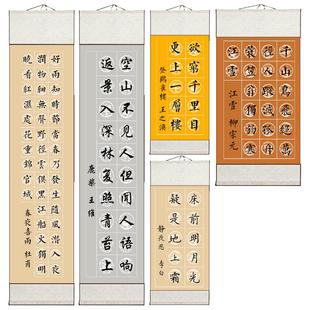 好雨知時節當春乃發生隨風潛入夜
潤物細無聲野徑雲俱黑江船火獨明
曉看紅濕處花重錦官城
春夜喜雨 杜甫
空山不見人但聞人語响
返景入深林复照青苔上
鹿柴 王維
欲窮千里目
更上一層樓
登鸛雀樓 王之渙
千山鳥飛絕
萬徑人蹤滅
孤舟蓑笠翁
獨釣寒江雪
江雪 柳宗元
床前明月光
疑是地上霜
静夜思 李白